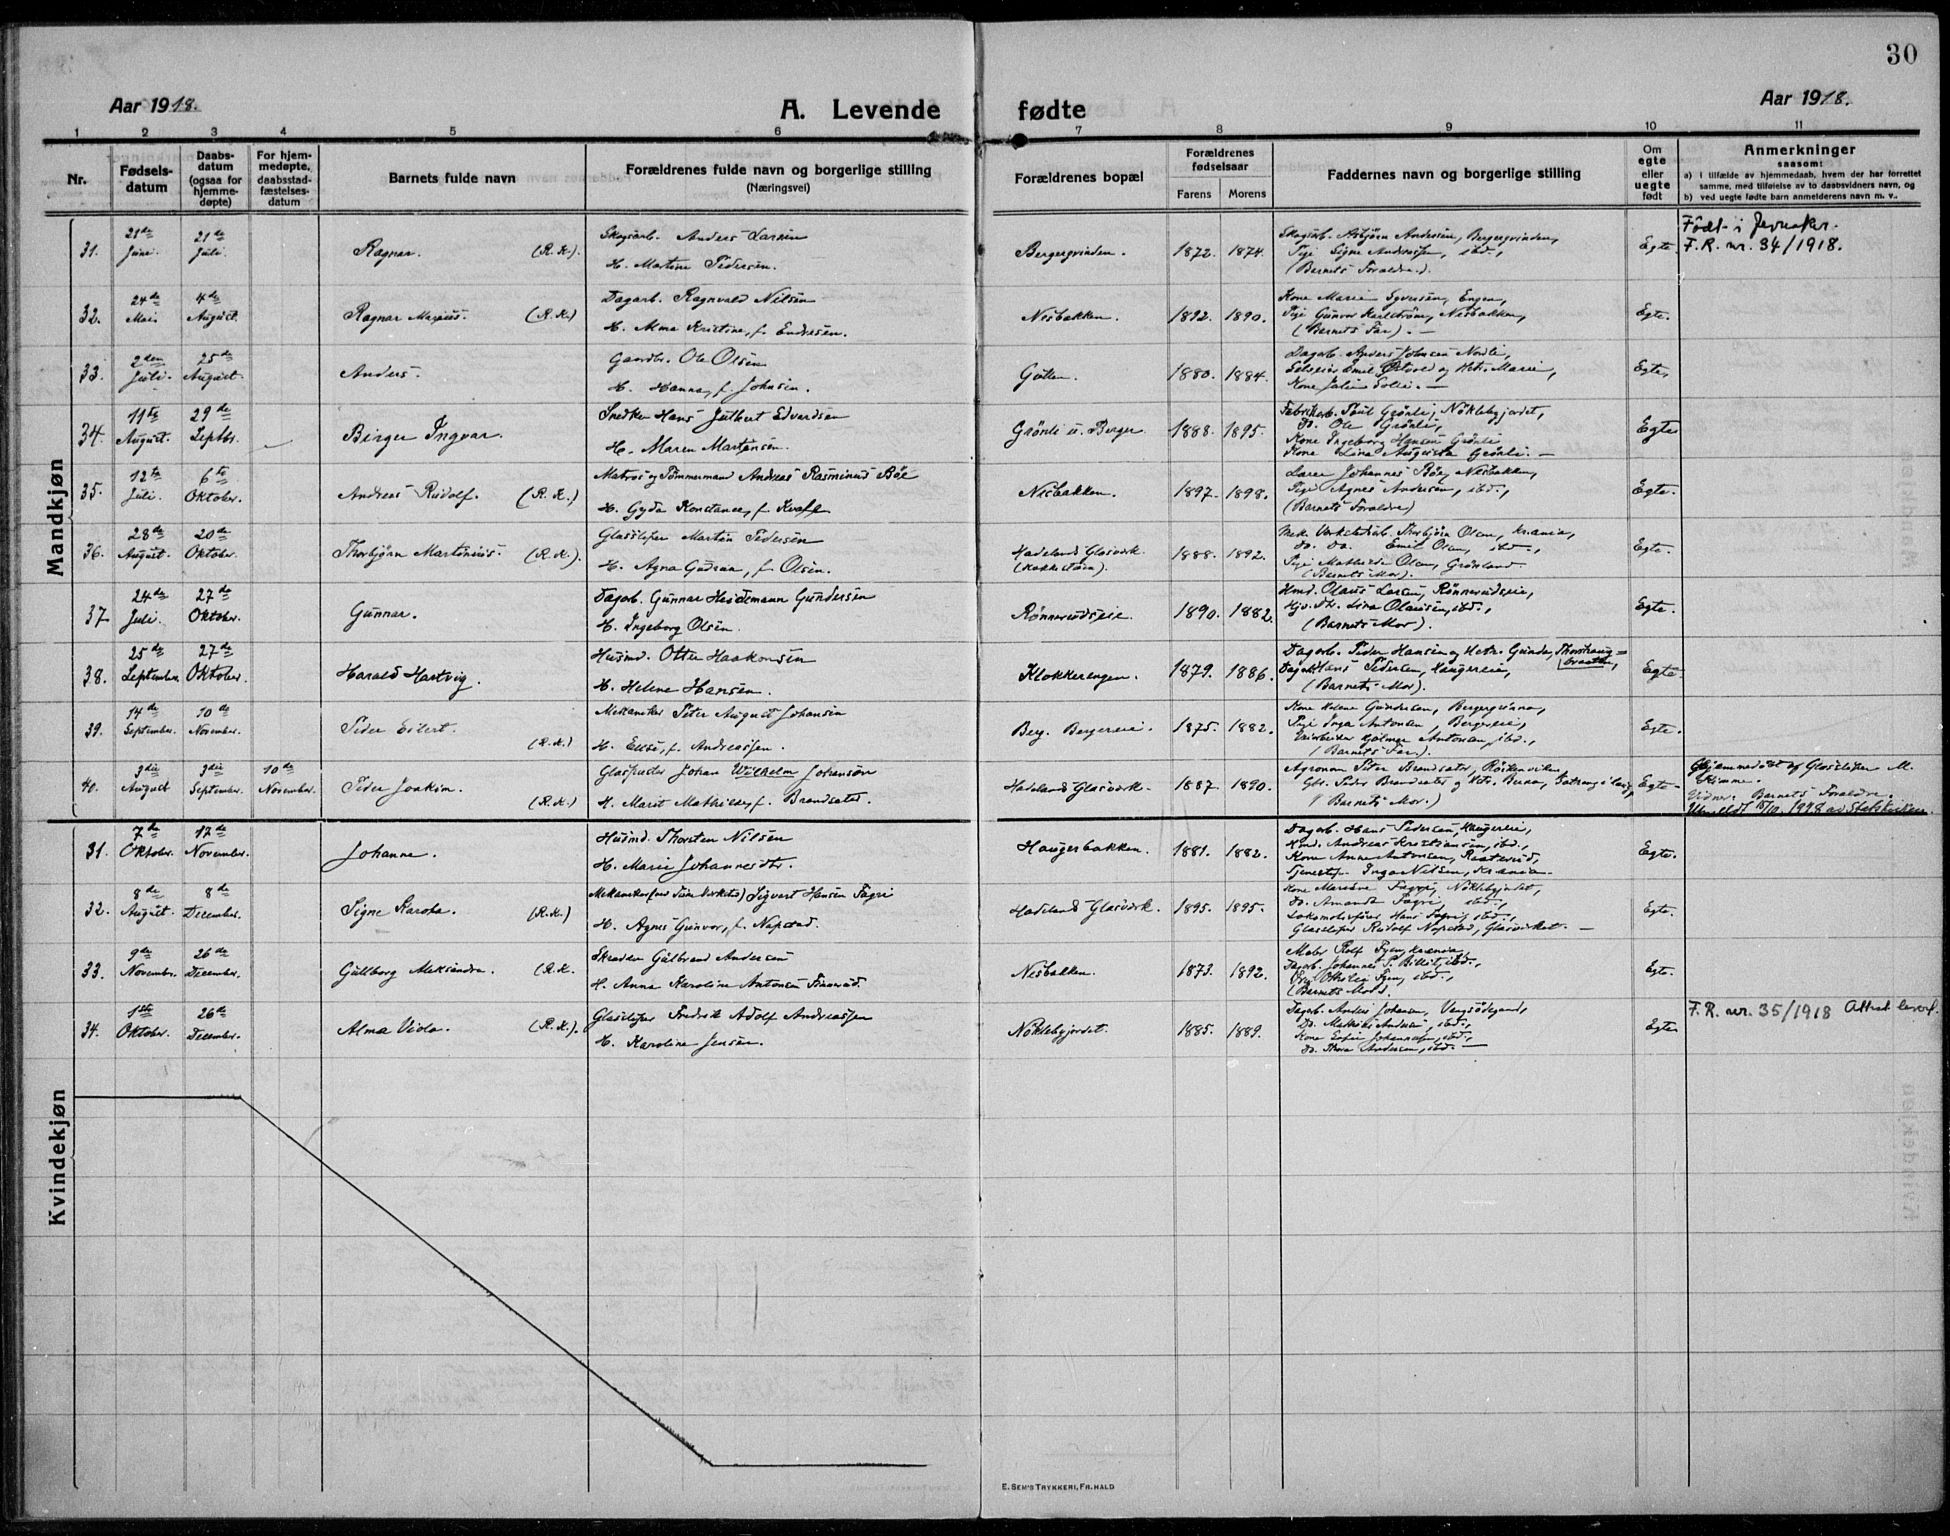 30
Aar 1918.
A. Levende fødte
Aar 1918.
1 2 3 4 5 6 7 8 9 10 11
Nr.
Fødsels-
datum
Daabs-
datum
(ogsaa for
hjemme-
døpte)
For hjem-
medøpte,
daabsstad-
fæstelses-
datum
Barnets fulde navn
Forældrenes fulde navn og borgerlige stilling
(Næringsvei)
Forældrenes bopæl
Forældrenes
fødselsaar
Farens Morens
Faddernes navn og borgerlige stilling
Om
egte
eller
uegte
født
Anmerkninger
saasom:
a) i tilfælde av hjemmedaab, hvem der har forrettet
samme, med tilføielse av to daabsvidners navn, og
b) ved uegte fødte barn anmelderens navn m. v..
Mandkjøn
31. 21de Juni. 21de Juli. Ragnar. (R.K.)
Skogsarb. Anders Larsen
H. Martine Pedersen.
Bergergvinden. 1872. 1874.
Skogsarb. Asbjørn Andersen, Bergergvinden,
Pige Signe Andersen, ibd.,
(Barnets Forældre.).
Egte.
Født i Jevnaker.
F.R. nr. 34/1918.
32. 24de Mai. 4de August. Ragnar Marius. (R.K.)
Dagarb. Ragnvald Nilsen
H. Alma Kristine, f. Endresen.
Nesbakken. 1892. 1890.
Kone Marie Syversen, Engen,
Pige Gunvor Karlstrøm, Nesbakken,
(Barnets Far). —
Egte.
33. 2den Juli. 25de August. Anders.
Gaardbr. Ole Olsen
H. Hanna, f. Johnsen.
Gullen. 1880. 1884.
Dagarb. Anders Johnsen Nordli,
Kone Julie Solli. —
Egte.
34. 11te August. 29de Septbr. — Birger Ingvar.
Snedker Hans Julbert Edvardsen
H. Maren Martinsen.
Grønli u. Berger 1888. 1895.
Fabrikarb. Paul Grønli, Nøklebyjordet,
Do. Ole Grønli,
Kone Ingeborg Hansen Grønli
Kone Lina Augusta Grønli. —
Egte
35. 12te Juli. 6te Oktober. Andreas Rudolf. (R.K.)
Matros og Tømmermand Andreas Rasminus Bøe
H. Gyda Konstance, f. Kval
Nesbakken. 1897. 1898.
Lærer Johannes Bøe, Nesbakken,
Pige Agnes Andersen, ibd.,
(Barnets Forældre)
Egte.
36. 28de August. 20de Oktober. Thorbjørn Martinius. (R.K.)
Glassliper Martin Pedersen
H. Agna Gudrun, f. Olsen.
Hadelands Glasværk.
1888. 1892.
Mek. Verkstedsarb. Thorbjørn Olsen, Krania,
Do. Do. Emil Olsen, ibd.,
Pige Mathilde Olsen, Grønland
(Barnets Mor).
Egte.
37 24de Juli. 27de Oktober. Gunnar.
Dagarb. Gunnar Heidemann Gundersen
H. Ingeborg Olsen.
Rønnerudseie. 1890. 1882.
Hmd. Olaus Larsen, Rønnerudseie,
Hjv. Dt. Lina Olausen, ibd.,
(Barnets Mor).
Egte.
38. 25de September 27de Oktober. Harald Hartvig.
Husmd. Otto Haakonsen
H. Helene Hansen.
Klokkerengen. 1879. 1886.
Dagarb. Peder Hansen og Hstr. Gunda, Thorstrang-
braaten,
Dagarb. Hans Pedersen, Haugereie,
(Barnets Mor).
Egte.
39. 14de September. 10de November. Peder Eilert. (R.K.)
Mekaniker Peter August Johansen
H. Elise, f. Andreassen.
Berg. Bergereie. 1875. 1882.
Kone Helene Gundersen,
Pige Inga Antonsen, Bergereie,
Hjalmar Antonsen, ibd.,
(Barnets Far.)
Egte.
40. 3die August 3die September. 10de November. Peder Joakim. (R.K.)
Glaspuster Johan Wilhelm Johansen
H. Marit Mathilde, f. Brandsæter.
Hadelands Glasværk. 1887. 1890.
Agronom Peter Brandsæter,
Gbr. Peder Brandsæter og Hstr. Buna,
(Barnets Mor.)
Egte.
Hjemmedøbt af Glassliper M.
Kimme.
Vidner. Barnets Forældre.
Utmeldt 15/10. 1998 av Statskirken.
Kvindekjøn
31. 7de Oktober. 17de November. Johanne.
Husmd. Thorsten Nilsen
H. Marie Johannesdtr.
Haugerbakken. 1881. 1882.
Dagarb. Hans Pedersen, Haugereie,
Hmd. Andreas Kristiansen, ibd.,
Kone Anne Antonsen, Raaterud,
Tjenestep. Inga Nilsen, Krania.
Egte.
32. 8de August. 8de December. Signe Karoba. (R.K.)
Mekaniker Sigvart Hansen Fagri
H. Agnes Gunvor, f. Napstad.
Hadelands Glasværk. 1895. 1895.
Kone Mariane Fagri, Nøklebyjordet,
Do. Amanda Fagri, ibd.,
Lokomotivfører Hans Fagri, ibd.,
Glassliper Rudolf Napstad, Glasværket. —
Egte.
33. 9de November. 26de December. Gullborg Aleksandra. (R.K.
Skrædder Gulbrand Andersen
H. Anna Karoline Antonsen Finnerud.
Nesbakken. 1873. 1892.
Maler Rolf Fyen, Krania,
Dagarb. Johannes P. Billit, ibd.,
(Barnets Mor).
Egte.
34. 1ste Oktober. 26de December. Alma Viola. (R.K.)
Glassliper Fredrik Adolf Andreassen
H. Karoline Jensen.
Nøklebyjordet. 1885. 1889.
Dagarb. Anders Johansen,
Do. Mathias Andersen, ibd.,
Kone Sofie Johannesen, ibd.,
Do. Thora Andersen, ibd. —
Egte
F.R. nr. 35/1918 Attest lever.
E. SEM'S TRYKKERI, FR.HALD